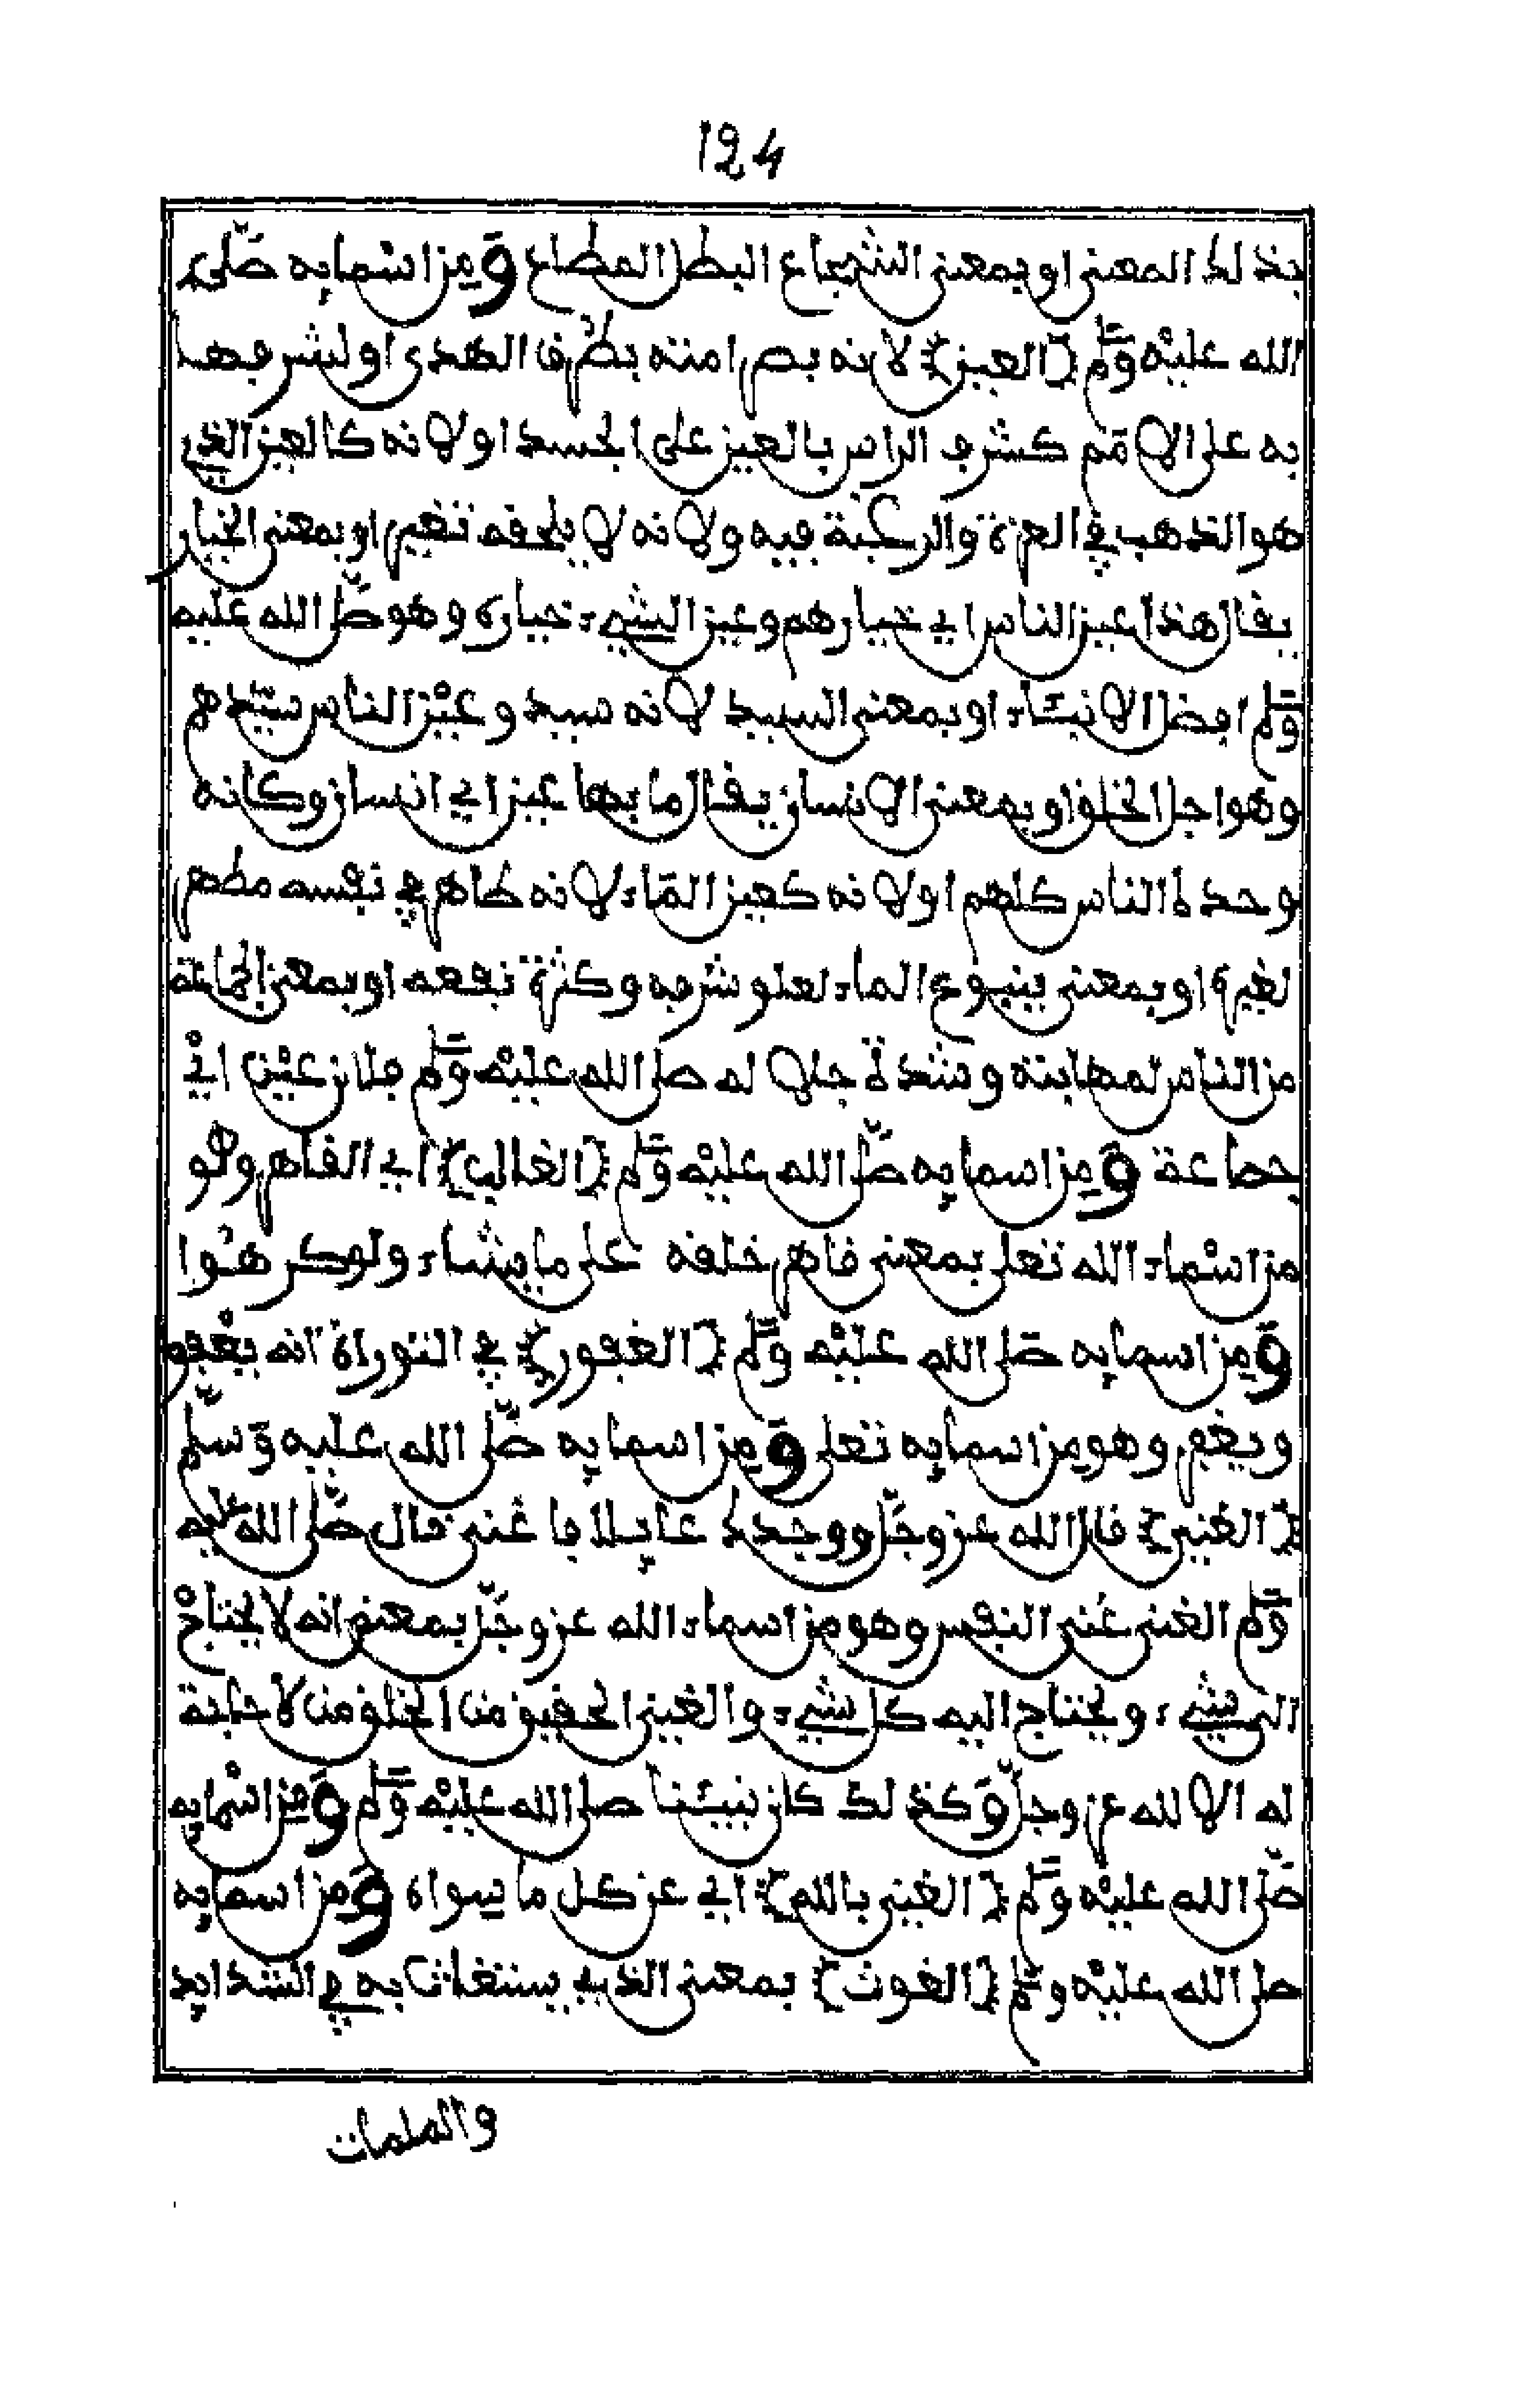 124
بذلك المعنى او بمعنى الشجاع البطل المطاع ومن اسمايه صلى
الله عليه وسلم {العين} لانه بصر امته بطرق الهدى او لشرفهـ
به على الامم كشرف الراس بالعين على الجسد او لانه كالعين الذي
هو الذهب في العزة والرغبة فيه ولانه لا يلحقه تغيير او بمعنى الخيار
يقال هذا عين الناس اي خيارهم وعين الشيء خياره وهو صلى الله عليه
وسلم افضل الانبياء او بمعنى السيد لانه سيد وعين الناس سيدهم
وهو اجل الخلق او بمعنى الانسان يقال ما بها عين اي انسان وكانه
وحده الناس كلهم او لانه كعين الماء لانه طاهر في نفسه مطهر
لغيره او بمعنى ينبوع الماء لعلو شرفه وكثرة نفعه او بمعنى الجماعة
من الناس لمهابته وشدة جلاله صلى الله عليه وسلم فلان عين اي
جماعة ومن اسمايه صلى الله عليه وسلم {الغالب} اي القاهر وهو
من اسماء الله تعلى بمعنى قاهر خلقه على ما يشاء ولو كرهوا
ومن اسمايه صلى الله عليه وسلم {الغفور} في التوراة انه يعفو
ويغفر وهو من اسمايه تعلى ومن اسمايه صلى الله عليه وسلم
{الغني} قال الله عز وجل ووجدك عايلا فاغنى قال صلى الله عليه
وسلم الغنى غنى النفس وهو من اسماء الله عز وجل بمعنى انه لا يحتاج
الى شيء ويحتاج اليه كل شيء والغني الحقيق من الخلق من لا حاجة
له الا لله عز وجل وكذلك كان نبينا صلى الله عليه وسلم ومن اسمايه
صلى الله عليه وسلم {الغني بالله} اي عن كل ما سواه ومن اسمايه
صلى الله عليه وسلم {الغوث} بمعنى الذي يستغاث به في الشدايد
والملمات